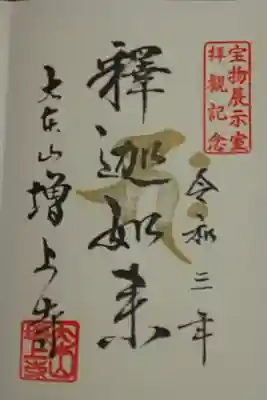 宝物展示室
拝観記念
令和三年
釋迦如来
大本山増上寺
大本山
増上寺